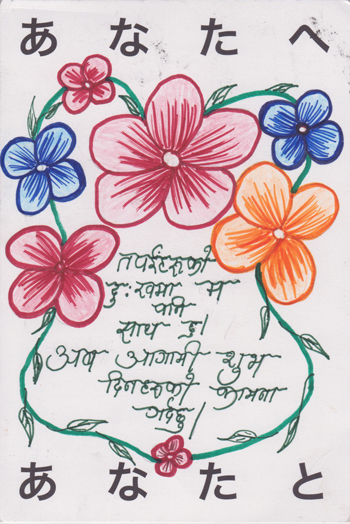 あなたへ
तपाईहरुको
दुःखमा म
पनि
साथ छु।
अब आगामी शुभ
दिनहरुको कामना
गर्दछु।
あなたと